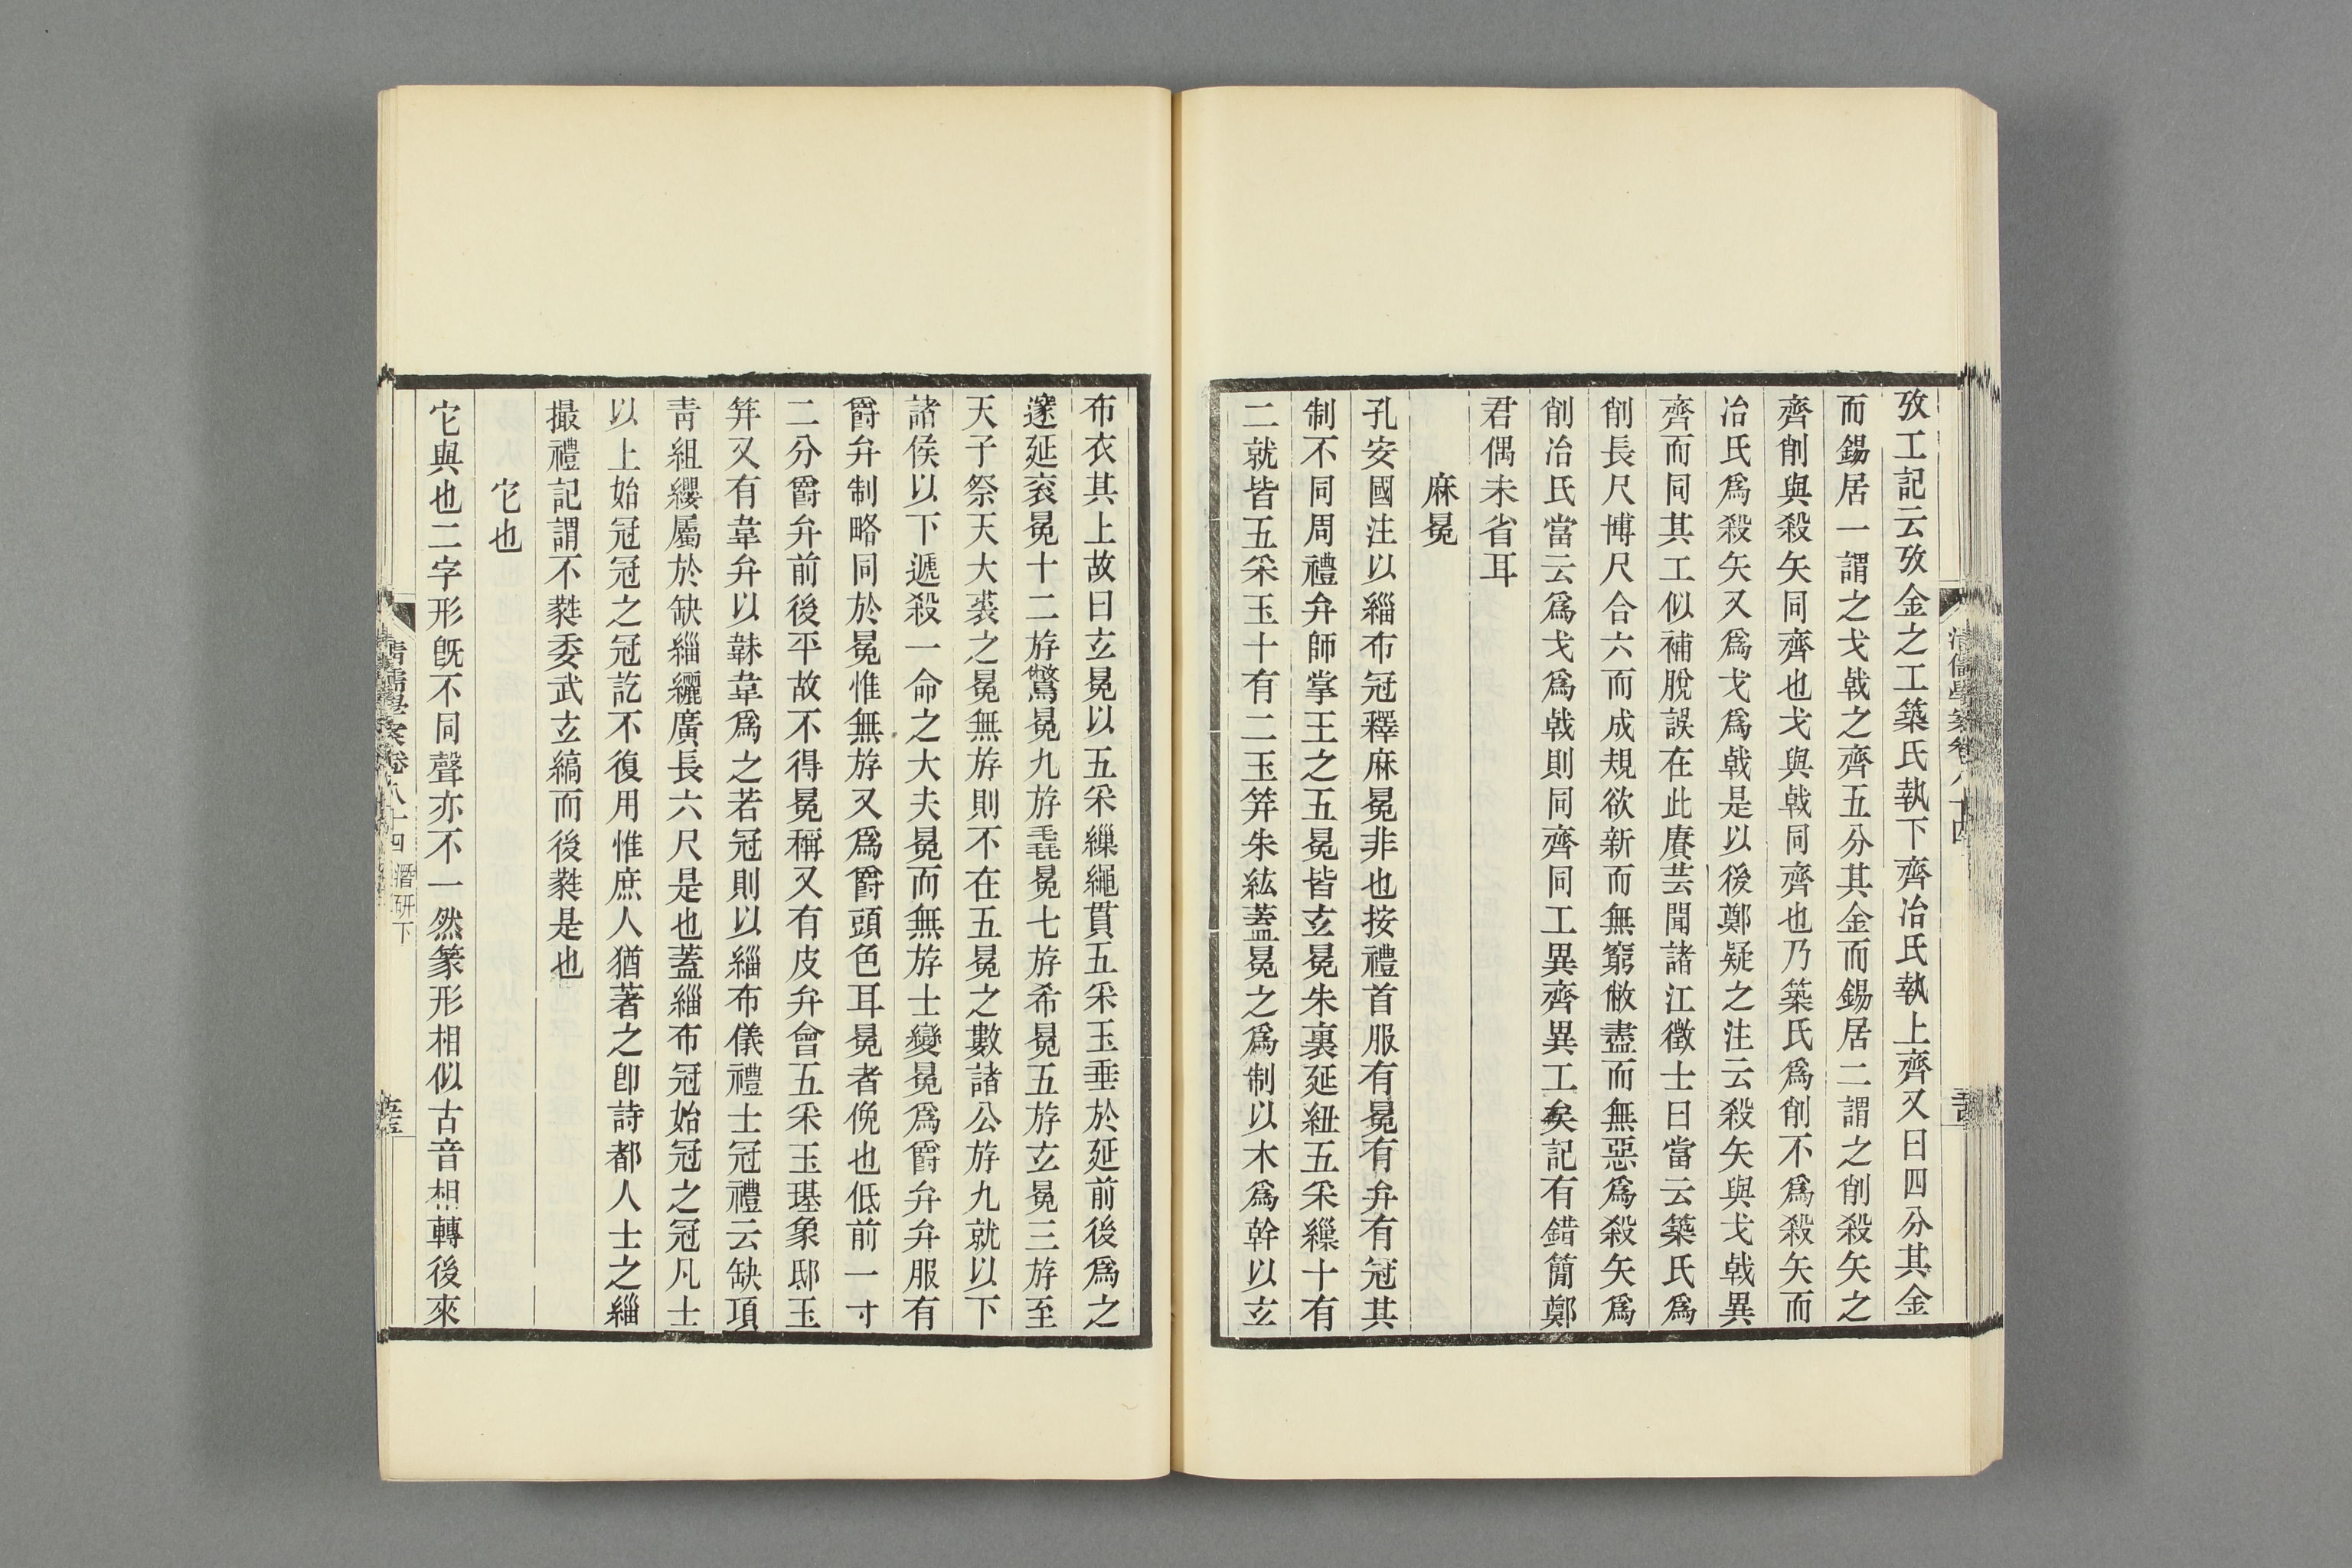 攷工記云攷金之工築氏執下齊冶氏執上齊又曰四分其金
而錫居一謂之戈戟之齊五分其金而錫居二謂之削殺矢之
齊削與殺矢同齊也戈與戟同齊也乃築氏爲削不爲殺矢而
冶氏爲殺矢又爲戈爲戟是以後鄭疑之注云殺矢與戈戟異
齊而同其工似補脫誤在此賡芸聞諸江徵士曰當云築氏爲
削長尺博尺合六而成規欲新而無窮敝盡而無惡爲殺矢爲
削冶氏當云爲戈爲戟則同齊同工異齊異工矣記有錯簡鄭
君偶未省耳
麻冕
孔安國注以緇布冠釋麻冕非也按禮首服有冕有弁有冠其
制不同周禮弁師掌王之五冕皆玄冕朱裏延紐五采繅十有
二就皆五采玉十有二玉筓朱紘蓋冕之爲制以木爲幹以玄
布衣其上故曰玄冕以五采繅繩貫五采玉垂於延前後爲之
邃延袞冕十二斿鷩冕九斿毳冕七斿希冕五斿玄冕三斿至
天子祭天大裘之冕無斿則不在五冕之數諸公斿九就以下
諸侯以下遞殺一命之大夫冕而無斿士變冕爲爵弁弁服有
爵弁制略同於冕惟無斿又爲爵頭色耳冕者俛也低前一寸
二分爵弁前後平故不得冕稱又有皮弁會五采玉璂象邸玉
筓又有韋弁以韎韋爲之若冠則以緇布儀禮士冠禮云缺項
靑組纓屬於缺緇纚廣長六尺是也蓋緇布冠始冠之冠凡士
以上始冠冠之冠訖不復用惟庶人猶著之卽詩都人士之緇
撮禮記謂不蕤委武玄縞而後蕤是也
它也
它與也二字形旣不同聲亦不一然篆形相似古音相轉後來
清儒學案卷八十四 潛研下